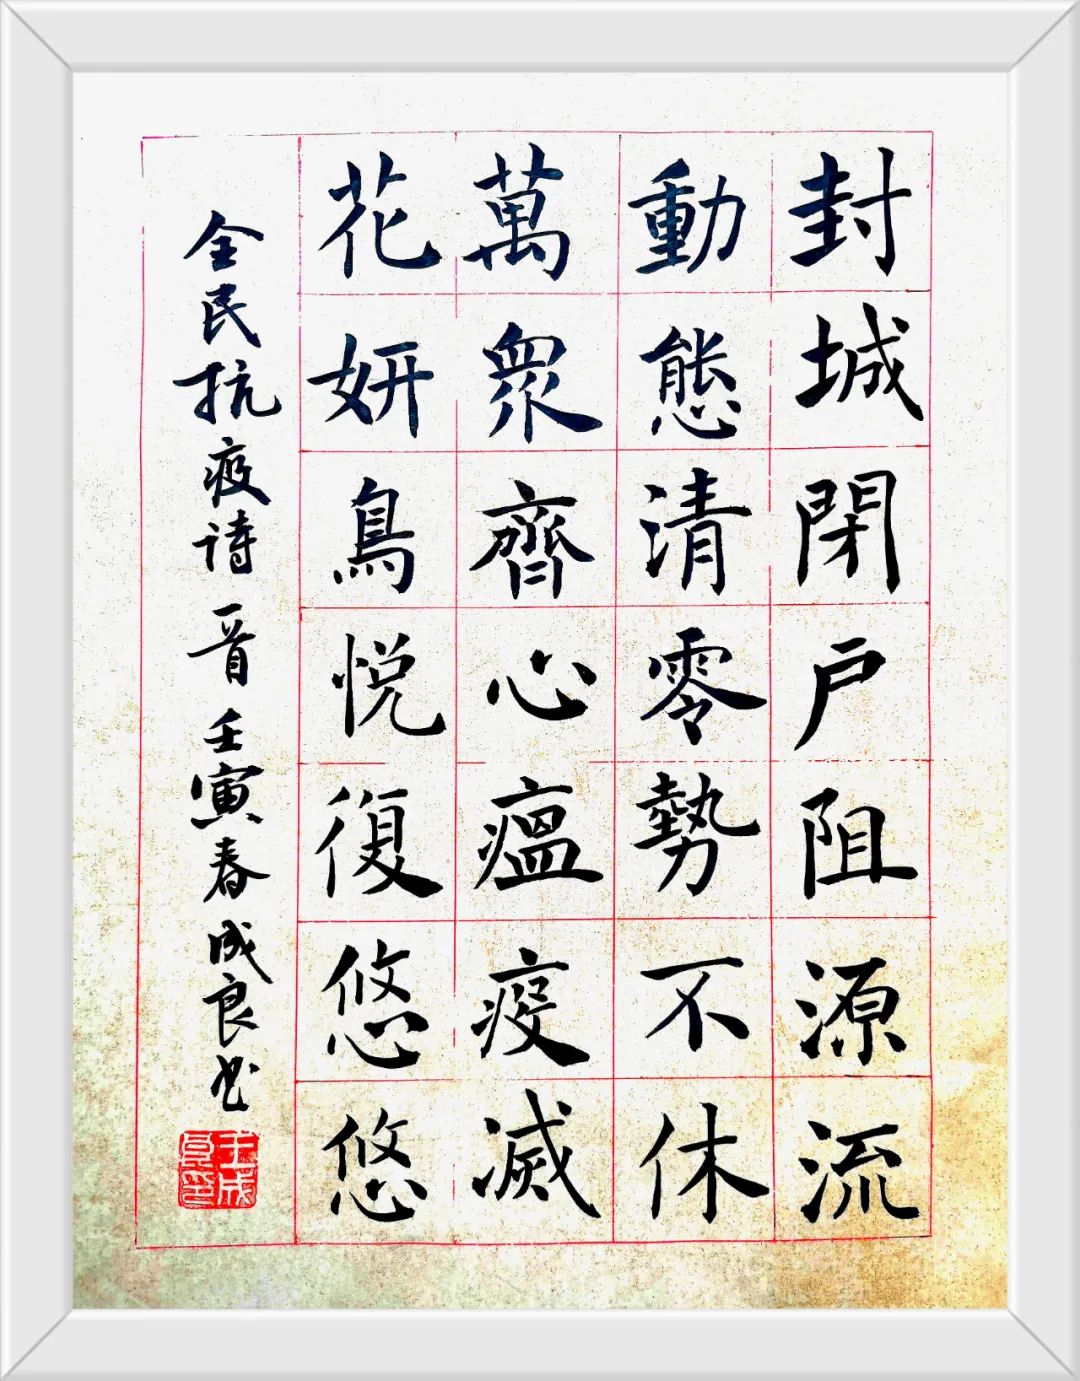 封城閉戶阻源流
動態清零勢不休
萬衆齊心瘟疫滅
花妍鳥悦復悠悠
全民抗疫诗 一首 壬寅春 成良书
王成良印